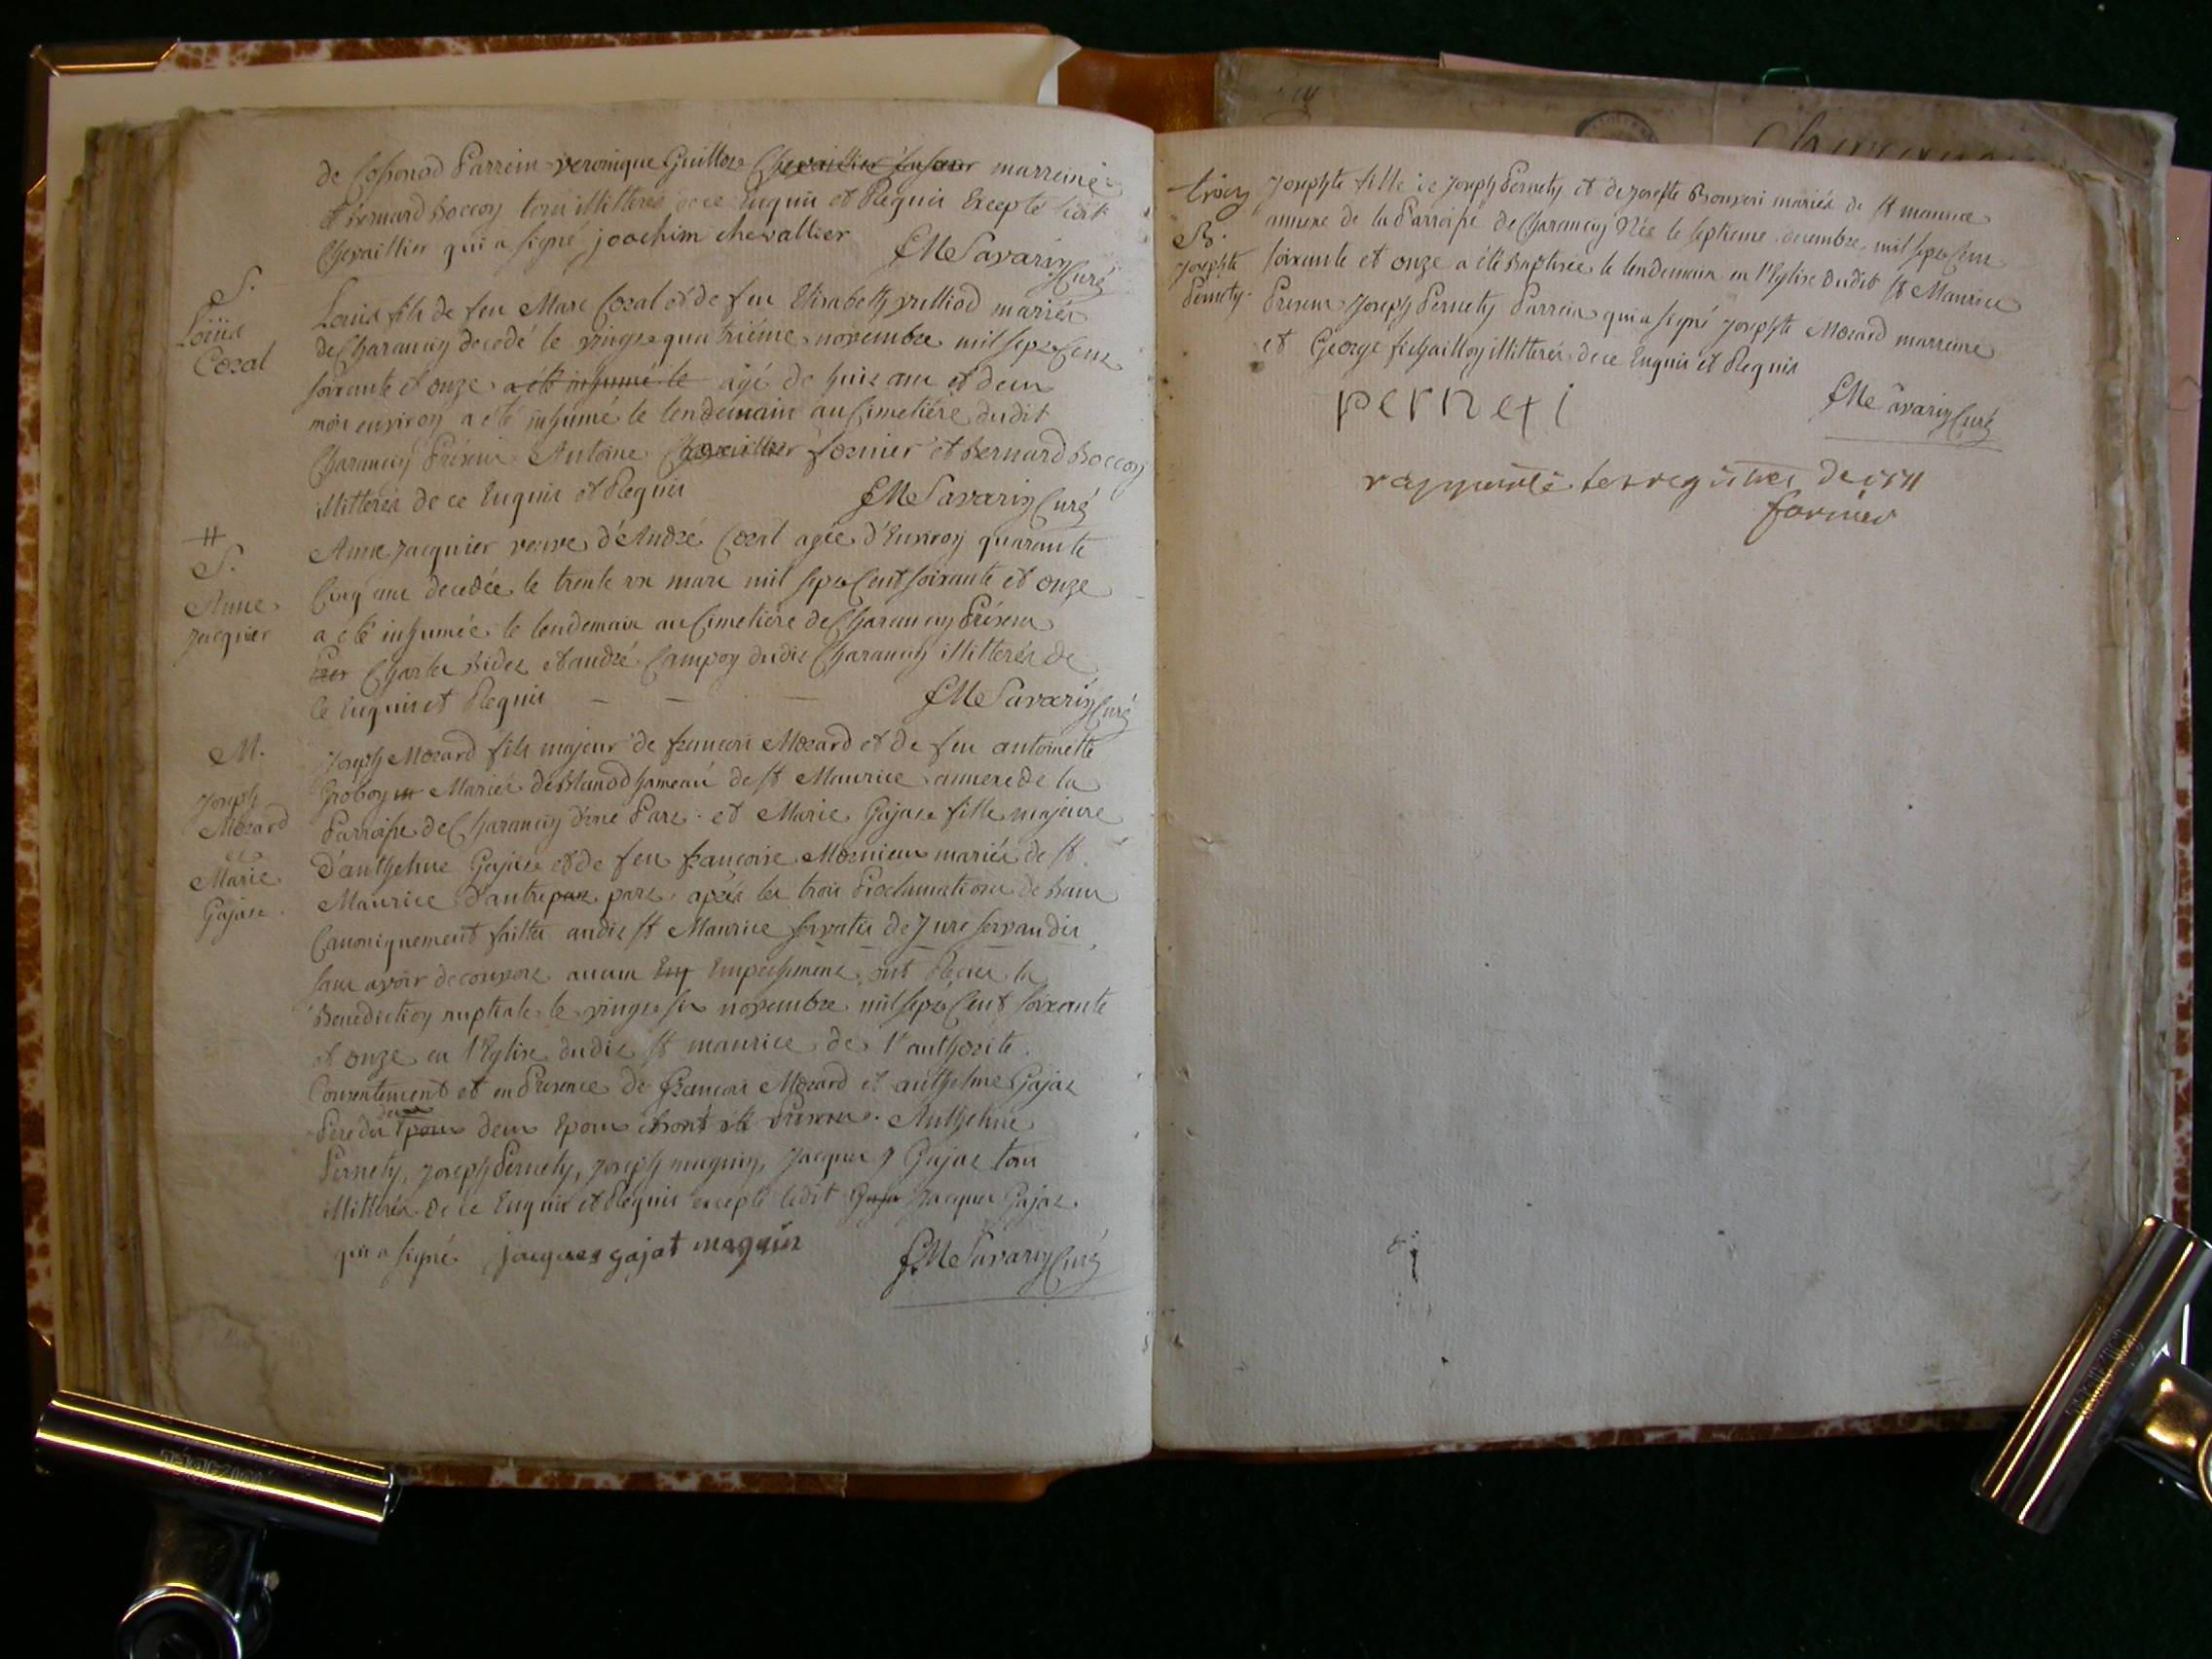 de Cossonod Parrein veronique Guillot Chevaillier sa soeur marreine
et Bernard Boccon tous illitterés de ce Enquis et Requis Excepté ledit
Chevaillier qui a signé joachim chevallier
CMe Savarin Curé
S.
Loüis
Cozal
Louis fils de feu Marc Cozal et de feu Elisabeth vulliod mariés
de Charancin decedé le vingt quatriéme novembre mil sept Cent
soixante et onze a été inhumé le agé de huit ans et deux
mois environ a été inhumé le lendemain au Cimetiére dudit
Charancin Présens Antoine Chevaillier fornier et Bernard Boccon
illitterés de ce Enquis et Requis
CMe Savarin Curé
#
S.
Anne
Jacquier
Anne Jacquier veuve d'André Cozal agée d'Environ quarante
Cinq ans decedée le trente un mars mil sept Cent soixante et onze
a été inhumée le lendemain au Cimetiére de Charancin Présens
Charles Bidet et andré Campon dudit Charancin illitterés de
Ce Enquis et Requis
CMe Savarin Curé
M.
Joseph
Mozard
et
Marie
Gajat
Joseph Mozard fils majeur de francois Mozard et de feu antoinette
Groboz Mariés de Blanod hameau de st Maurice annexe de la
Parroisse de Charancin d'une Part. et Marie Gajat fille majeure
d'anthelme Gajat et de feu francoise Mornieux mariés de st
Maurice d'autre part part. après les trois Proclamations de bans
Canoniquement faittes audit st Maurice servatis de Jure servandis
sans avoir decouvert aucun Emp Empechement ont Recu la
Benediction nuptiale le vingt six novembre mil sept Cent soixante
et onze en l'Eglise dudit st maurice de l'authorité
Consentement et en Présence de francois Mozard et anthelme Gajat
Pere des deux Epoux deux Epoux et ont été Présens. Anthelme
Pernety, Joseph Pernety, Joseph magnin, Jacques Gajat tous
illitterés de ce Enquis et Requis excepté ledit Gajat Jacques Gajat
qui a signé jacques gajat magnin
CMe Savarin Curé
B.
Josephte
Pernety.
Josephte fille de Joseph Pernety et de Josephte Bonpoix mariés de st maurice
annexe de la Parroisse de Charancin Née le septieme decembre mil sept Cent
soixante et onze a été Baptisée le lendemain en l'Eglise dudit st Maurice
Présens Joseph Pernety Parrein qui a signé Josephte Mozard marreine
et George fichaillon illitterés de ce Enquis et Requis
perneti
CMe Savarin Curé
les registres de 1771